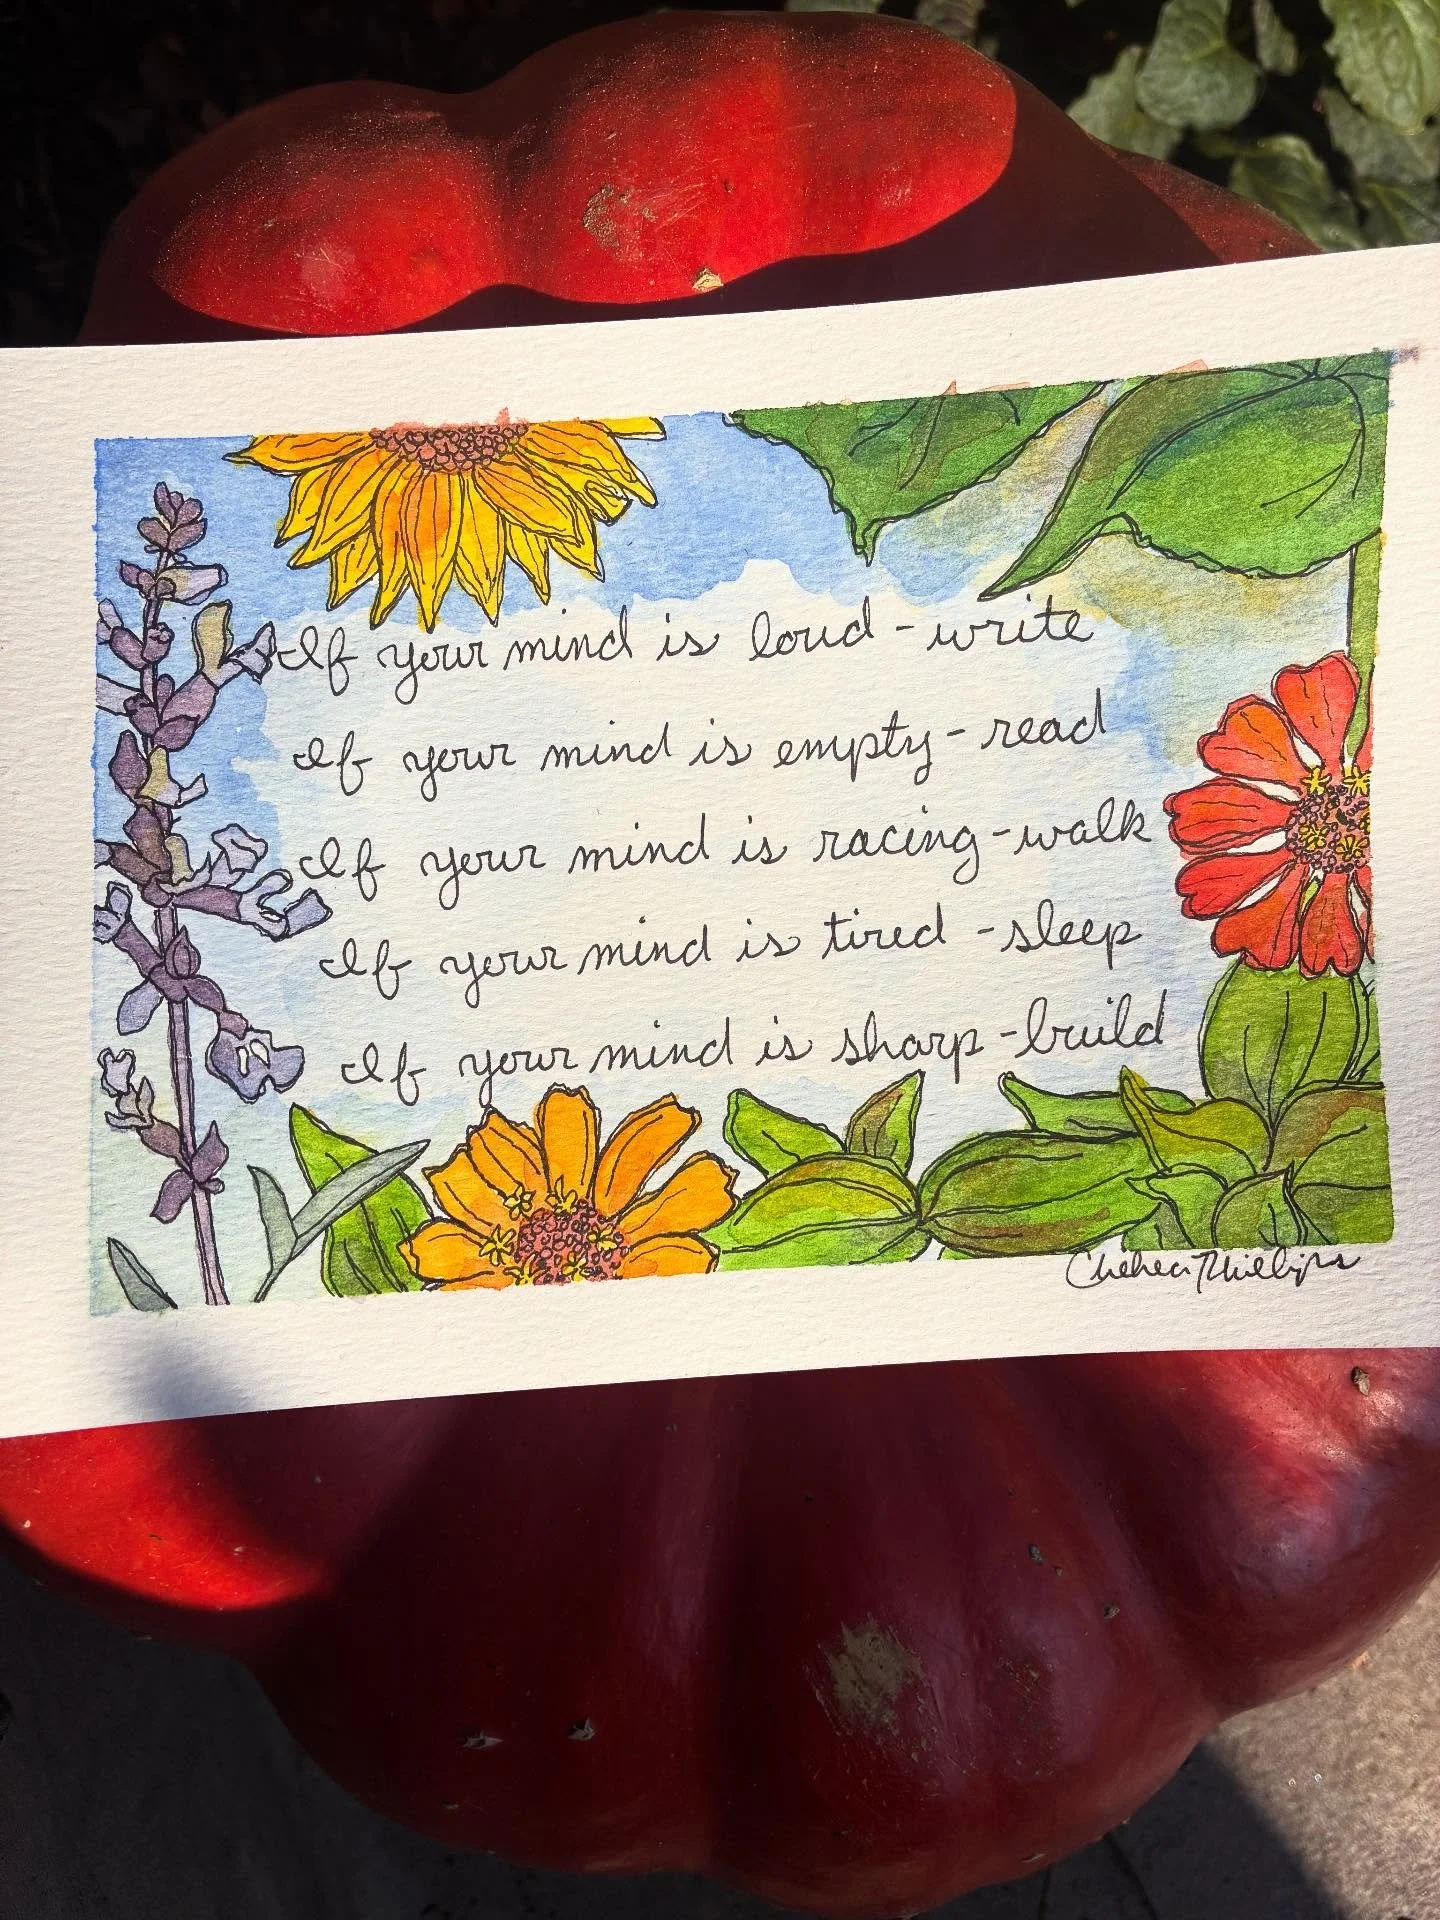 If your mind is loud - write
If your mind is empty - read
If your mind is racing - walk
If your mind is tired - sleep
If your mind is sharp - build
Chelsea Phillips